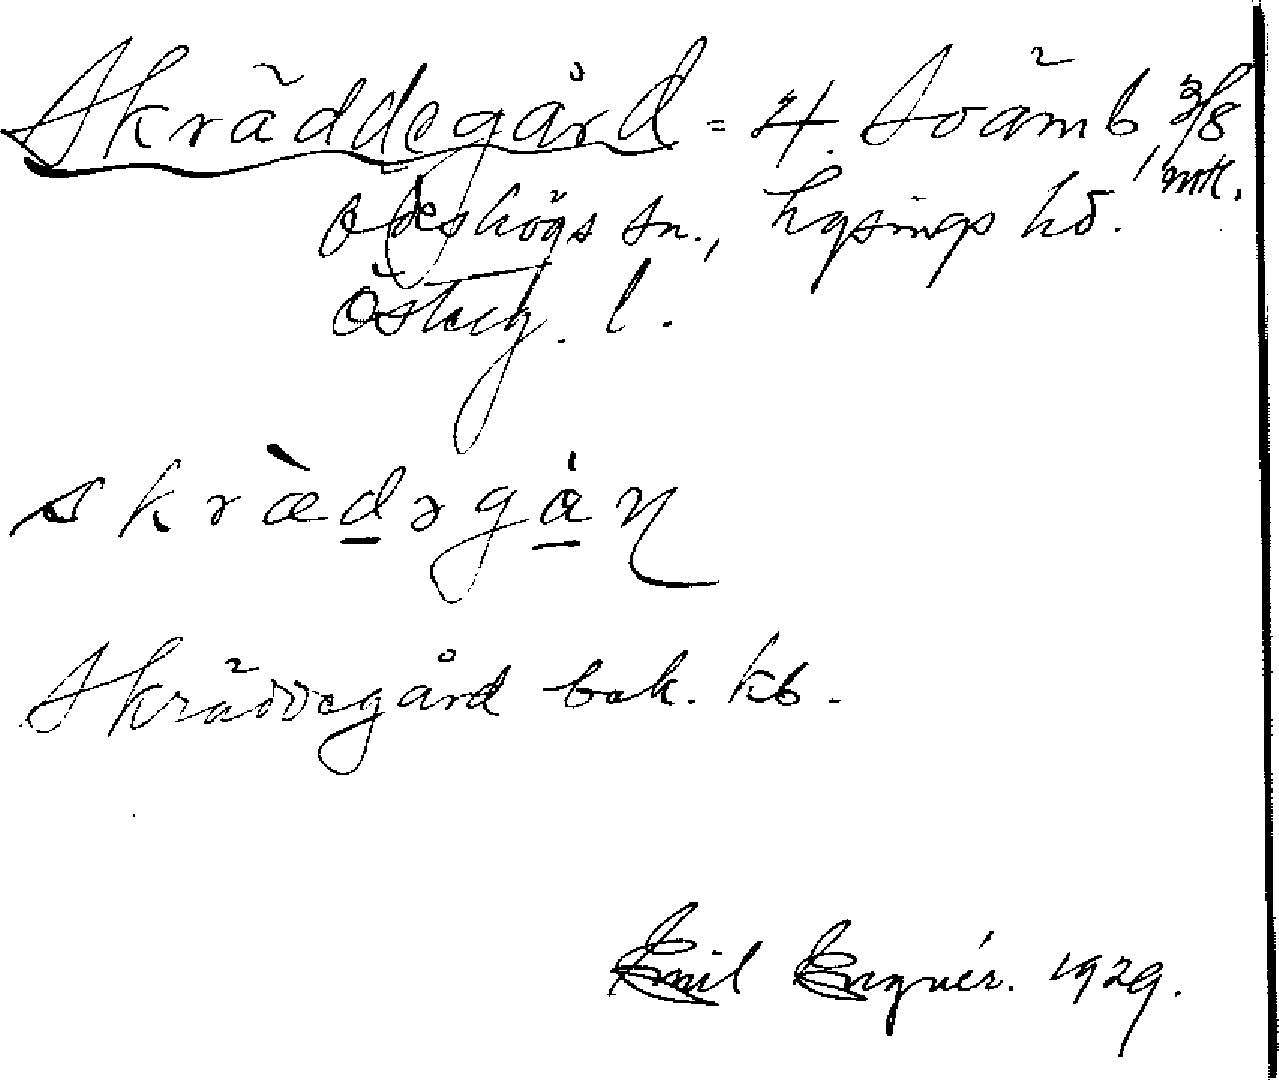 Skräddegård = 4. Svämb, 3/8
mtl.
Ödeshögs sn., Lysings hd.
Österg. l.
skræ̀dəgǻɳ
Skräddegård bok. kb.
Emil Engnér. 1929.